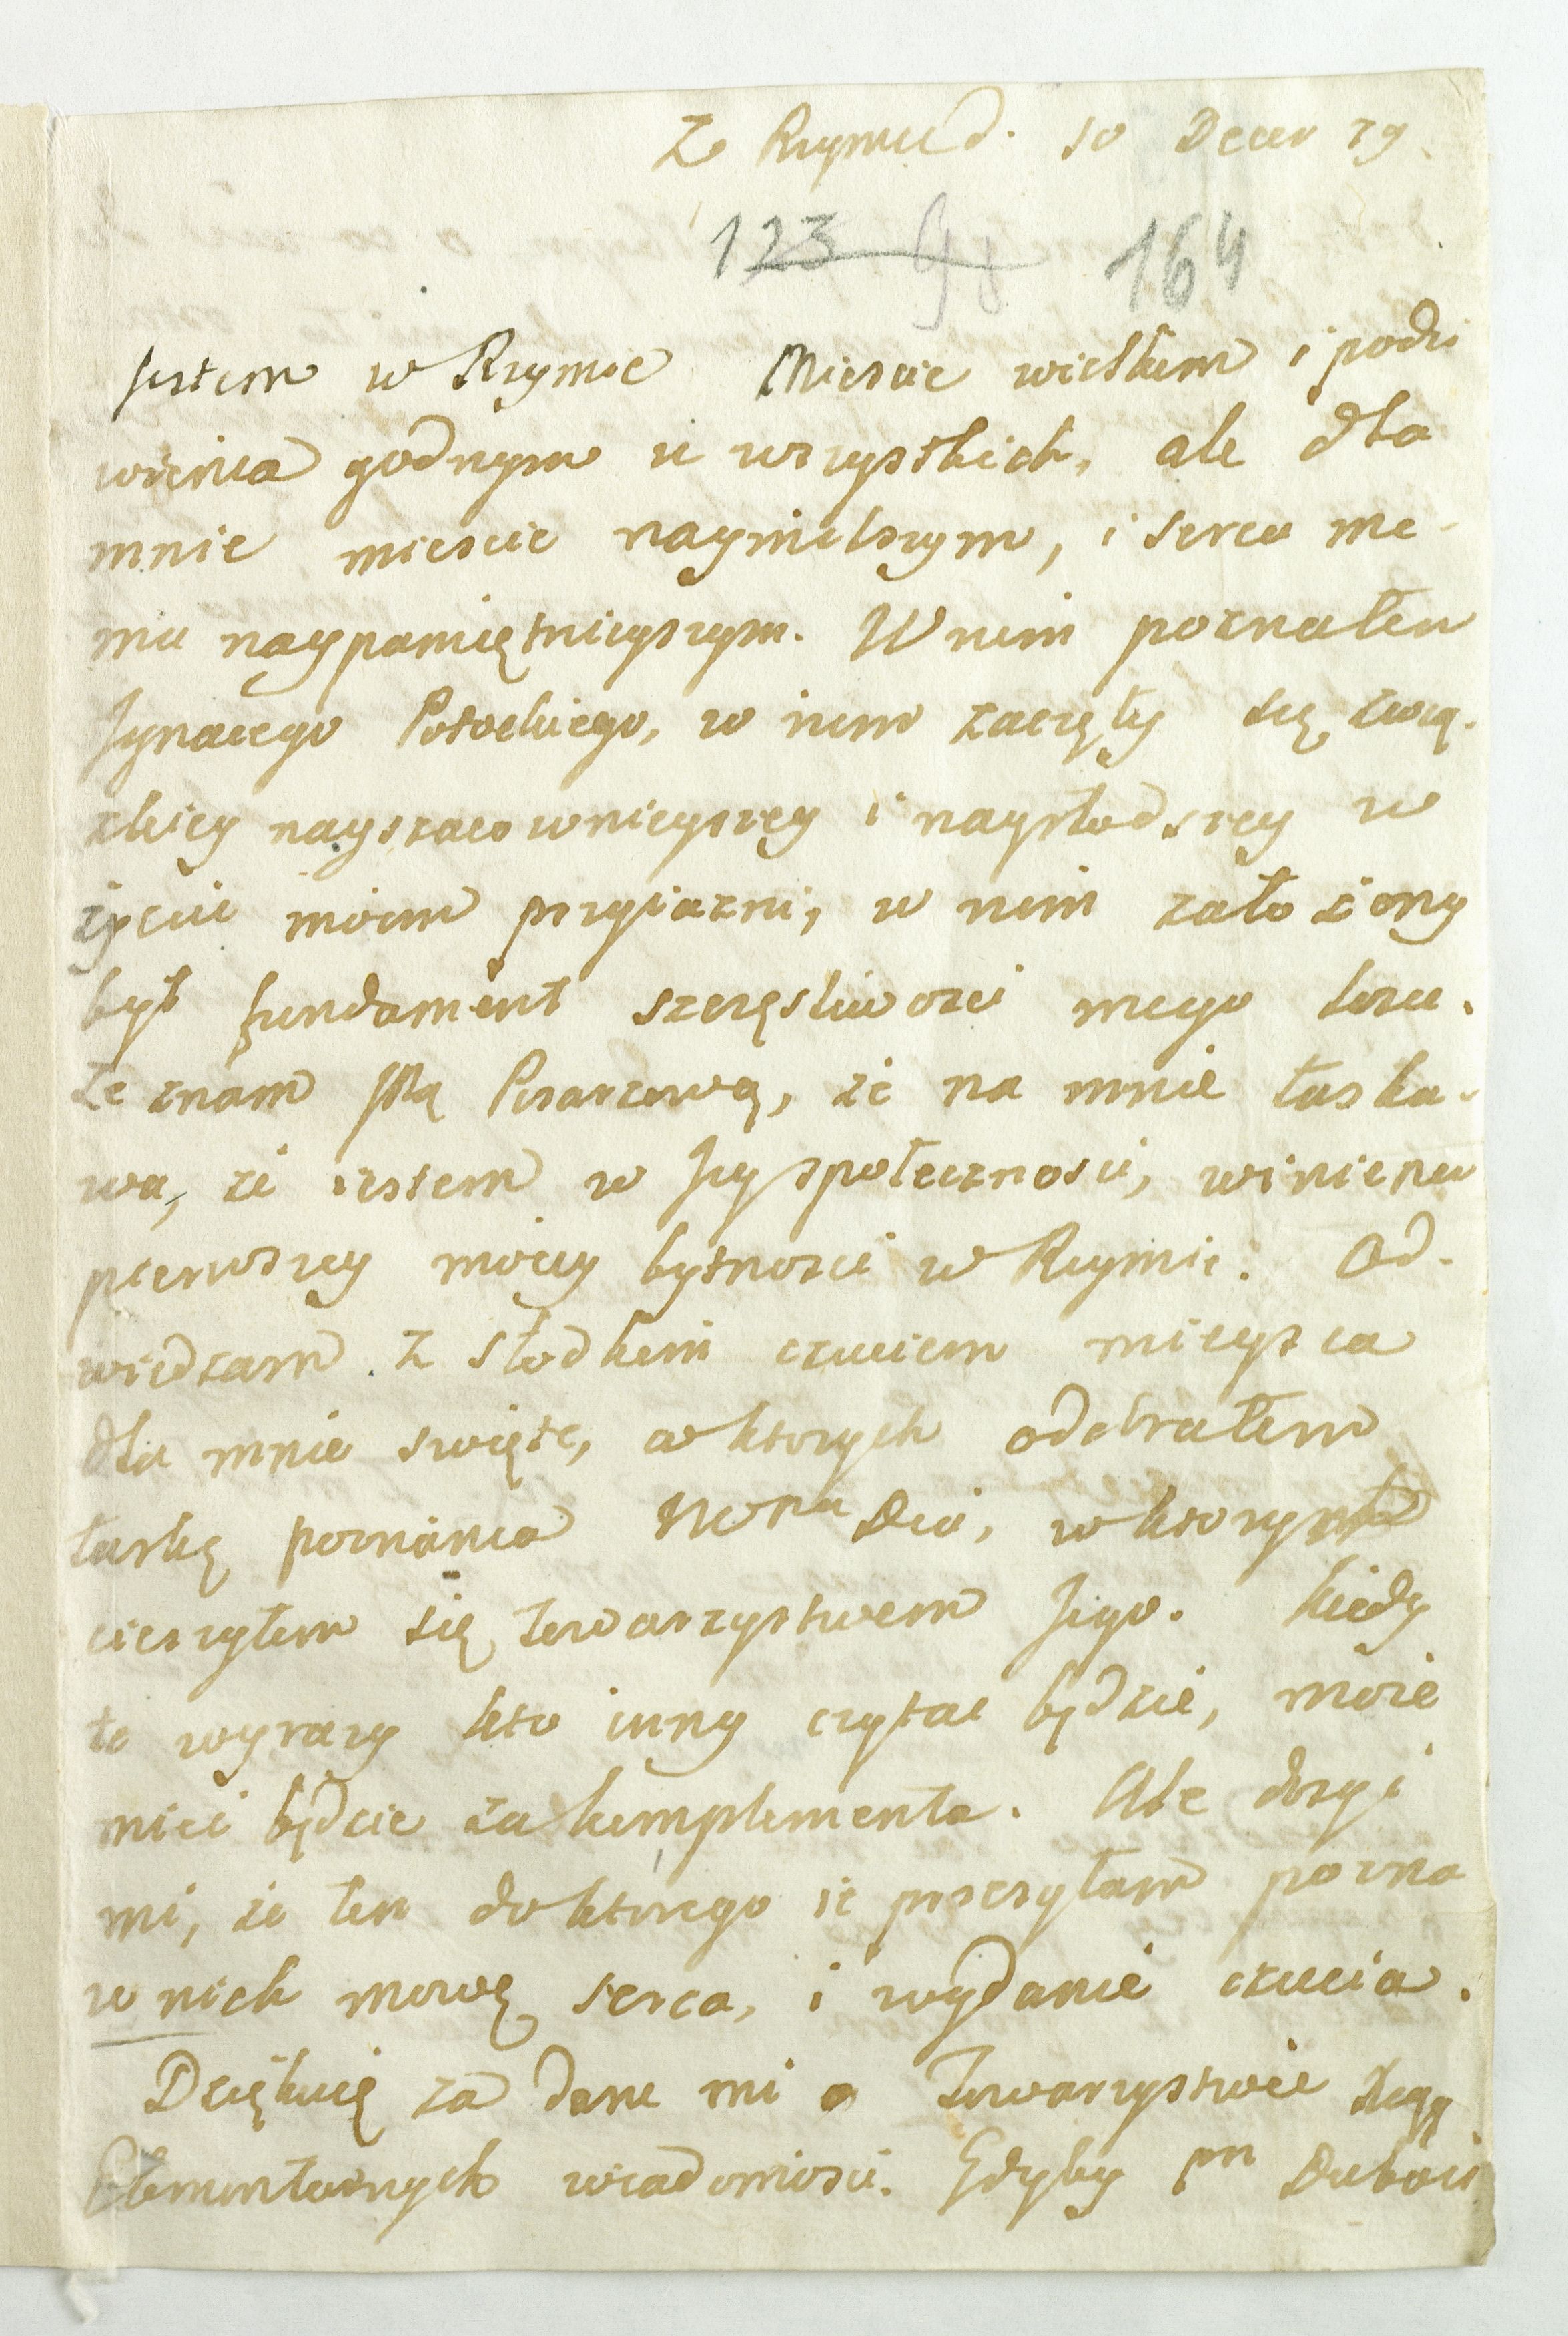 Z Rzymu d. 10 Decem 79.
123 98 164
Jestem w Rzymie Miescie wielkim i podzi
wienia godnym u wszystkich, ale dla
mnie miescie naymilszym, i sercu me-
mu naypamiętnieyszym. W nim poznałem
Jgnacego Potockiego, w nim zaczęły się zwią-
zki ey nayszacownieyszey i naysłodszey w
życiu moim przyiazni, w nim założony
był fundament szczęsliwosci mego losu.
Ze znam JPą Pisarzową, że na mnie łaska-
wa, że iestem w Jey społecznosci, winienem
pierwszey moiey bytnosci w Rzymie. Od-
wiedzam z słodkim czuciem mieysca
dla mnie swięte, w ktorych odebrałem
łaskę poznania WPana Dia, w ktorych
cieszyłem się towarzystwem Jego. Kiedy
te wyrazy kto inny czytac będzie, może
miec będzie za komplementa. Ale dosyc
mi, że ten do ktorego ie przesyłam pozna
w nich mowę serca, i wydanie czucia.
Dziękuię za dane mi o Towarzystwie Xiąg
Elementarnych wiadomosci. Gdyby Pn Dubois